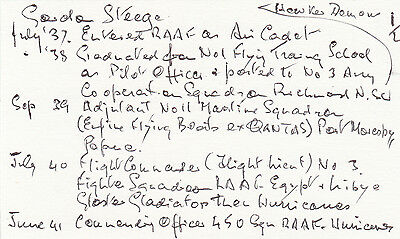 Hawker Demon
1/2
Gordon Steege
July '37. Entered RAAF as Air Cadet
'38 Graduated from No1 Flying Training School
as Pilot Officer & posted to No 3 Army
Cooperation Squadron Richmond N.SW
Sep 39 Adjutant No 11 Maritime Squadron
(Empire Flying Boats ex QANTAS) Port Moresby
Papua.
July 40 Flight Commander (Flight Lieut) No 3
Fighter Squadron RAAF Egypt & Libya
Gloster Gladiator then Hurricanes
June 41 Commanding Officer 450 Sqn RAAF Hurricanes